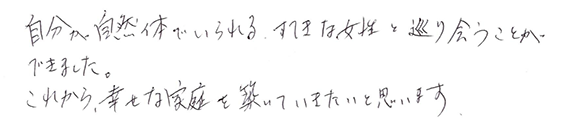 自分が自然体でいられる、すてきな女性と巡り会うことが
できました。
これから、幸せな家庭を築いていきたいと思います